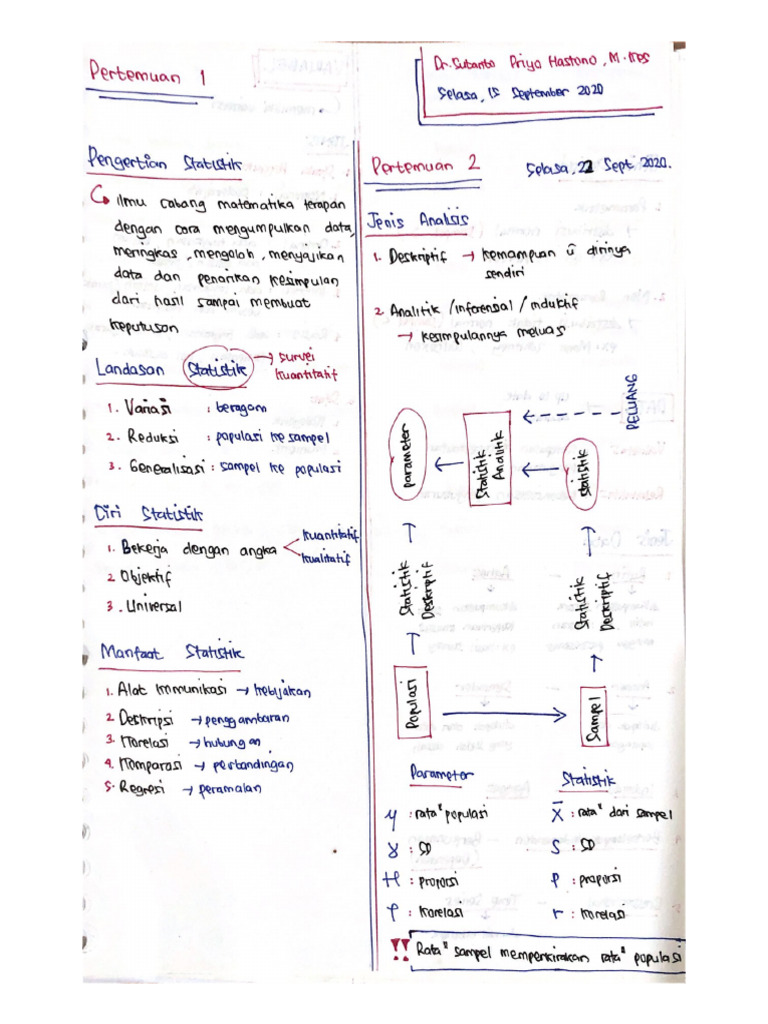 Pertemuan 1
Dr. Sutanto Priyo Hastono, M. Kes
Selasa, 15 September 2020
Pengertian Statistik
ilmu cabang matematika terapan
dengan cara mengumpulkan data,
meringkas, mengolah, menyajikan
data dan penarikan kesimpulan
dari hasil sampai membuat
keputusan
Landasan Statistik → survei
kuantitatif
1. Variasi : beragam
2. Reduksi : populasi ke sampel
3. Generalisasi : sampel ke populasi
Ciri Statistik
1. Bekerja dengan angka < kuantitatif
kualitatif
2 Objektif
3. Universal
Manfaat Statistik
1. Alat komunikasi → kebijakan
2 Deskripsi → penggambaran
3. Korelasi → hubungan
4. Komparasi → perbandingan
5. Regresi → peramalan
Pertemuan 2 Selasa, 22 Sept. 2020.
Jenis Analisis
1. Deskriptif → kemampuan u dirinya
sendiri
2. Analitik / inferensial / induktif
→ kesimpulannya meluas
PELUANG
parameter
Statistik
Analitik
statistik
Statistik
Deskriptif
Statistik
Deskriptif
Populasi
Sampel
Parameter Statistik
μ : rata" populasi X̄ : rata" dari sampel
: SD S : SD
: proporsi P : proporsi
: korelasi r : korelasi
!! Rata" sampel memperkirakan rata" populasi